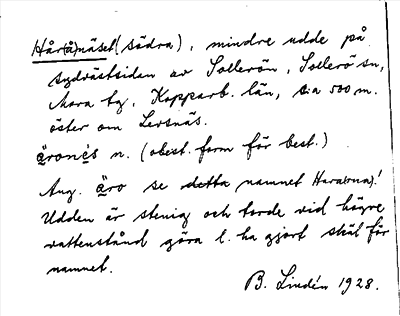 Hår(å)näset (södra), mindre udde på
sydvästsidan av Sollerön, Sollerö sn,
Mora tg, Kopparb. län, c:a 500 m.
öster om Levsnäs.
äronè̢s n. (obest. form för best.)
Ang. äro se detta namnet Hara(rna)!
Udden är stenig och torde vid högre
vattenstånd göra l. ha gjort skäl för
namnet.
B. Lindén 1928.